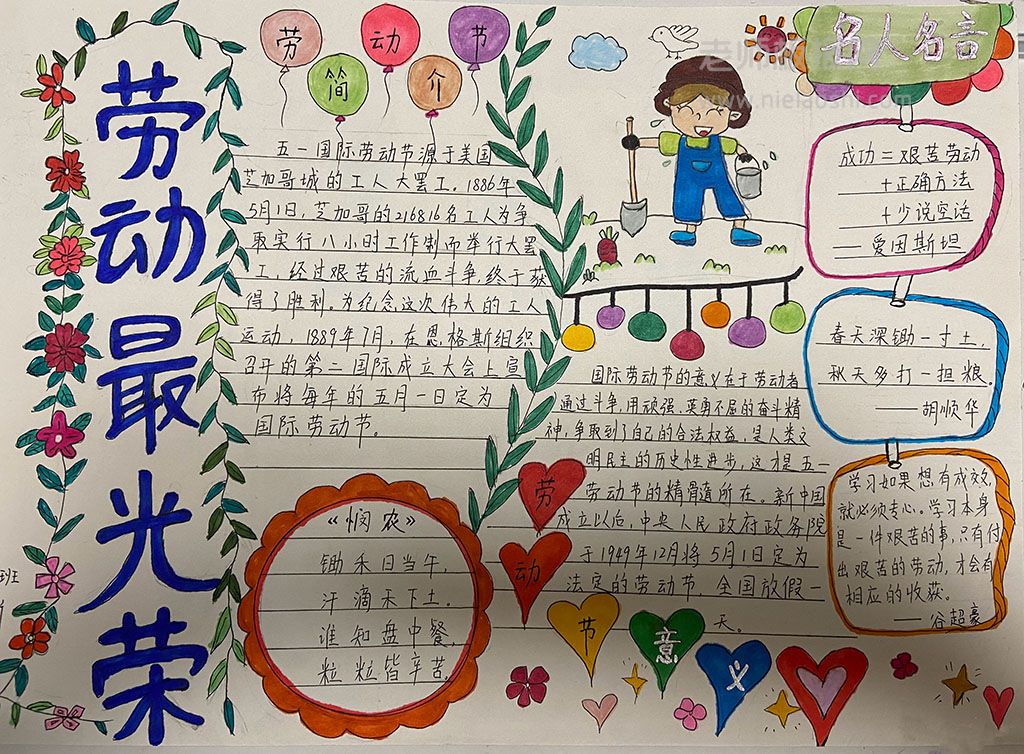 劳动最光荣
劳动节
简介
五一国际劳动节源于美国
芝加哥城的工人大罢工。1886年
5月1日,芝加哥的216816名工人为争
取实行八小时工作制而举行大罢
工,经过艰苦的流血斗争,终于获
得了胜利。为纪念这次伟大的工人
运动,1889年7月,在恩格斯组织
召开的第二国际成立大会上宣
布将每年的五月一日定为
国际劳动节。
《悯农》
锄禾日当午,
汗滴禾下土。
谁知盘中餐,
粒粒皆辛苦。
国际劳动节的意义在于劳动者
通过斗争,用顽强、英勇不屈的奋斗精
神,争取到了自己的合法权益,是人类文
明民主的历史性进步,这才是五一
劳动节的精髓所在。新中国
成立以后,中央人民政府政务院
于1949年12月将5月1日定为
法定的劳动节,全国放假一
天。
劳动节意义
名人名言
成功=艰苦劳动
+正确方法
+少说空话
——爱因斯坦
春天深锄一寸土,
秋天多打一担粮。
——胡顺华
学习如果想有成效,
就必须专心。学习本身
是一件艰苦的事,只有付
出艰苦的劳动,才会有
相应的收获。
——谷超豪
班
www.nielaoshi.com